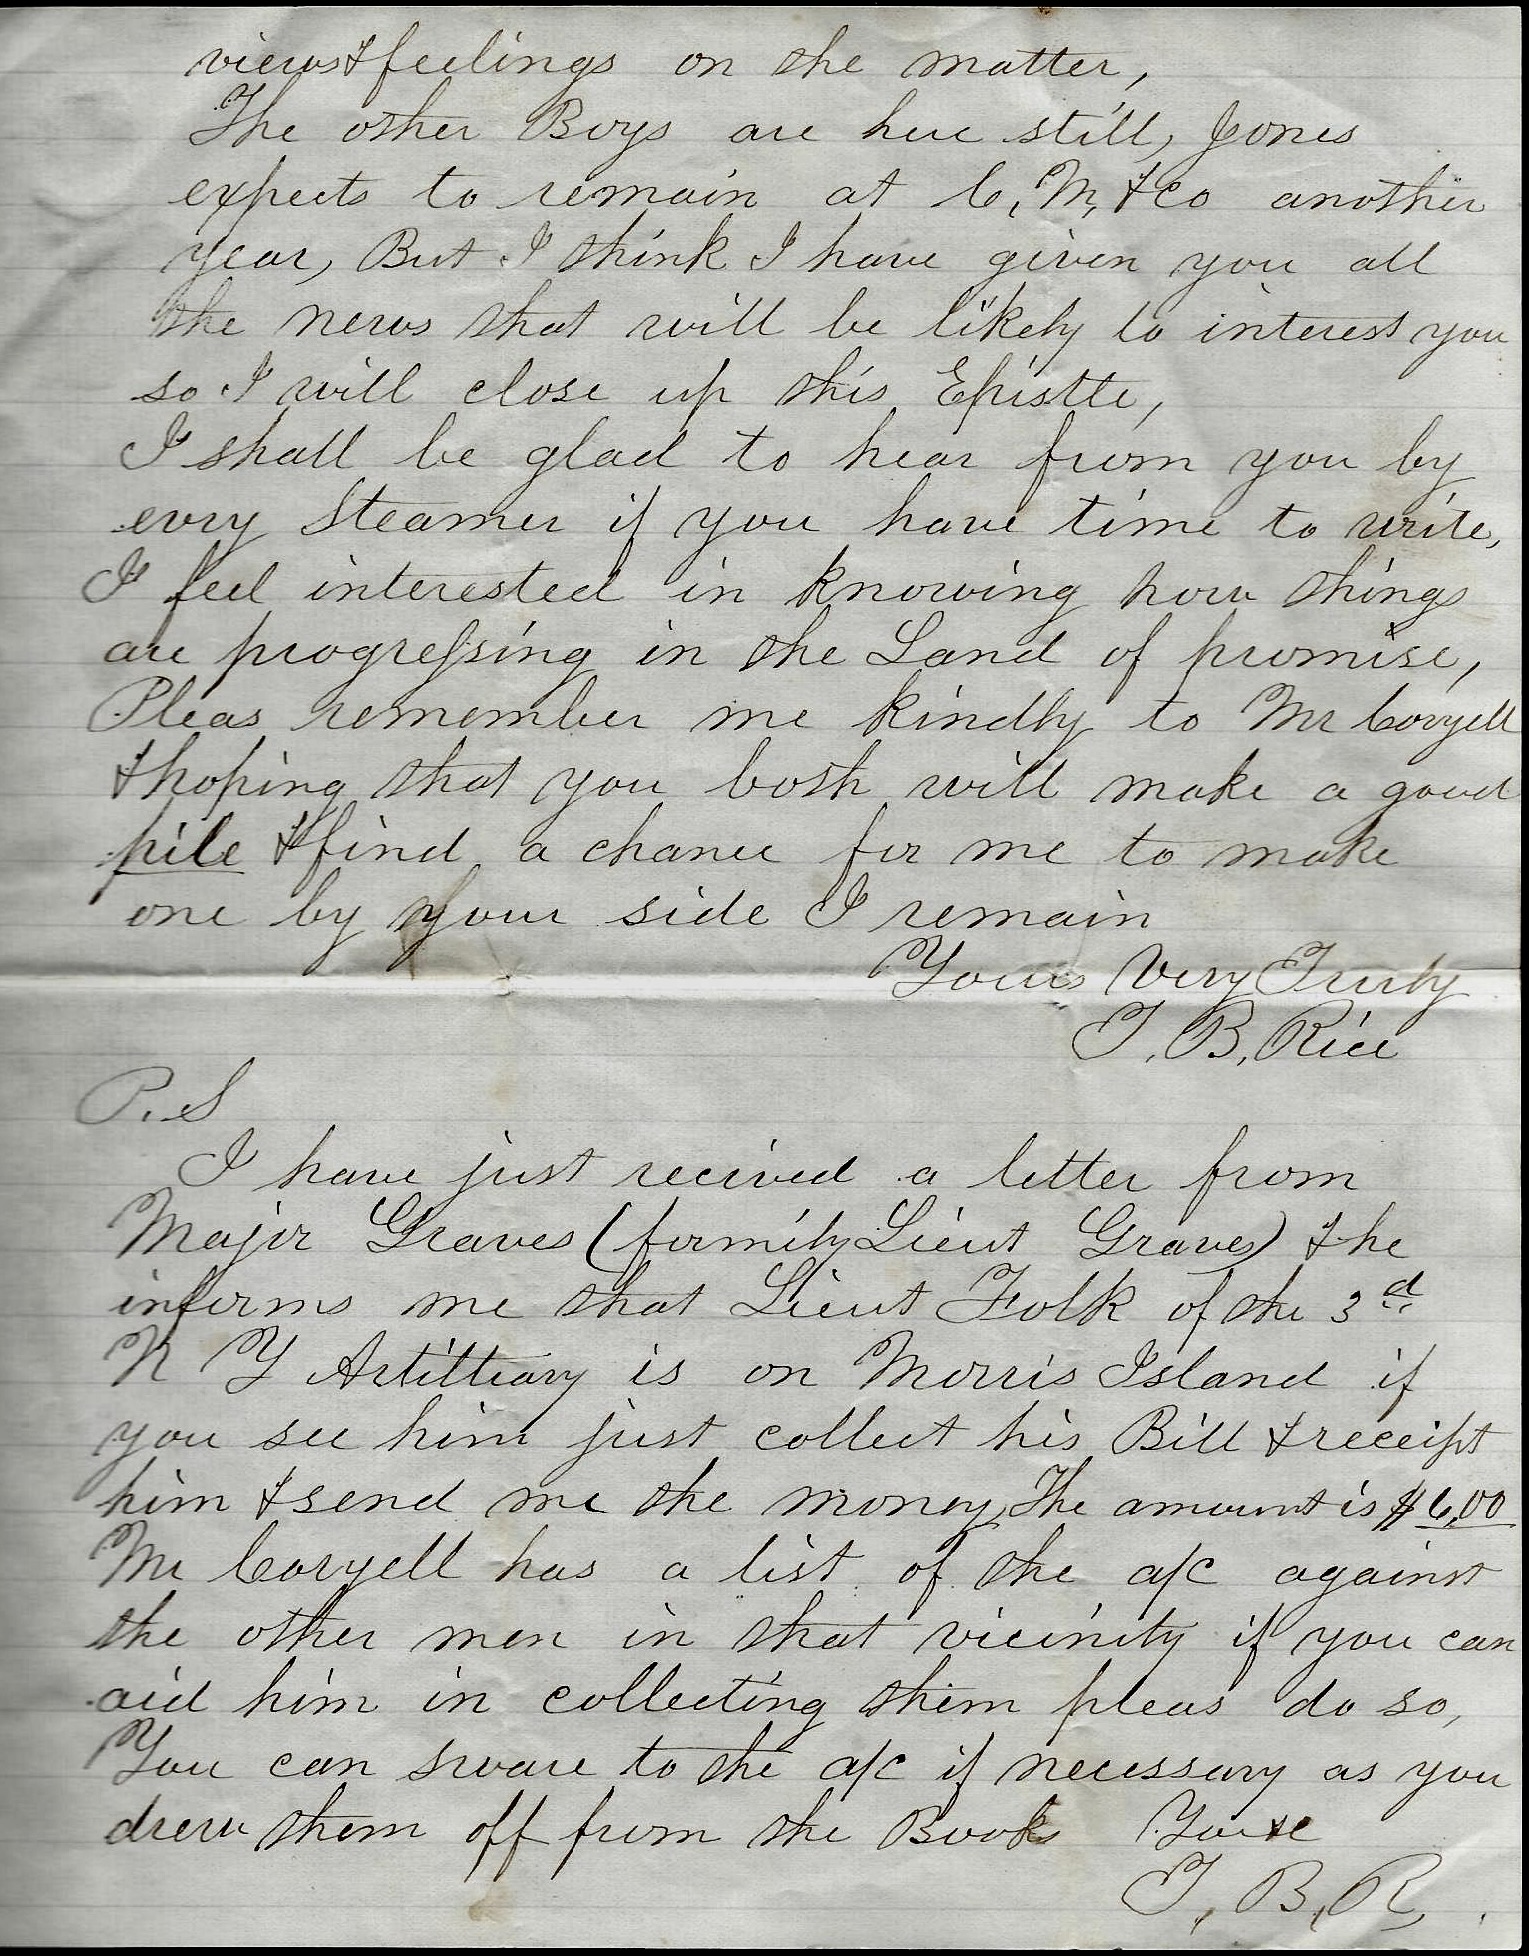 views & feelings on the matter,
The other Boys are here still, Jones
expects to remain at C, M, & Co another
year, But I think I have given you all
the news that will be likely to interest you
so I will close up this Epistle,
I shall be glad to hear from you by
evry Steamer if you have time to write,
I feel interested in knowing how things
are progressing in the Land of promise,
Pleas remember me kindly to Mr Coryell
& hoping that you both will make a good
pile & find a chance for me to make
one by your side I remain
Yours Very Truly
T. B. Rice
P. S
I have just recived a letter from
Major Graves (formily Lieut Graves) & he
informs me that Lieut Folk of the 3d
N Y Artilliary is on Morris Island if
you see him just collect his Bill & receipt
him & send me the money, The amount is $6,00
Mr Coryell has a list of the a/c against
the other men in that vicinity if you can
aid him in collecting them pleas do so,
You can sware to the a/c if necessary as you
drew them off from the Books Yours &c
T, B, R,